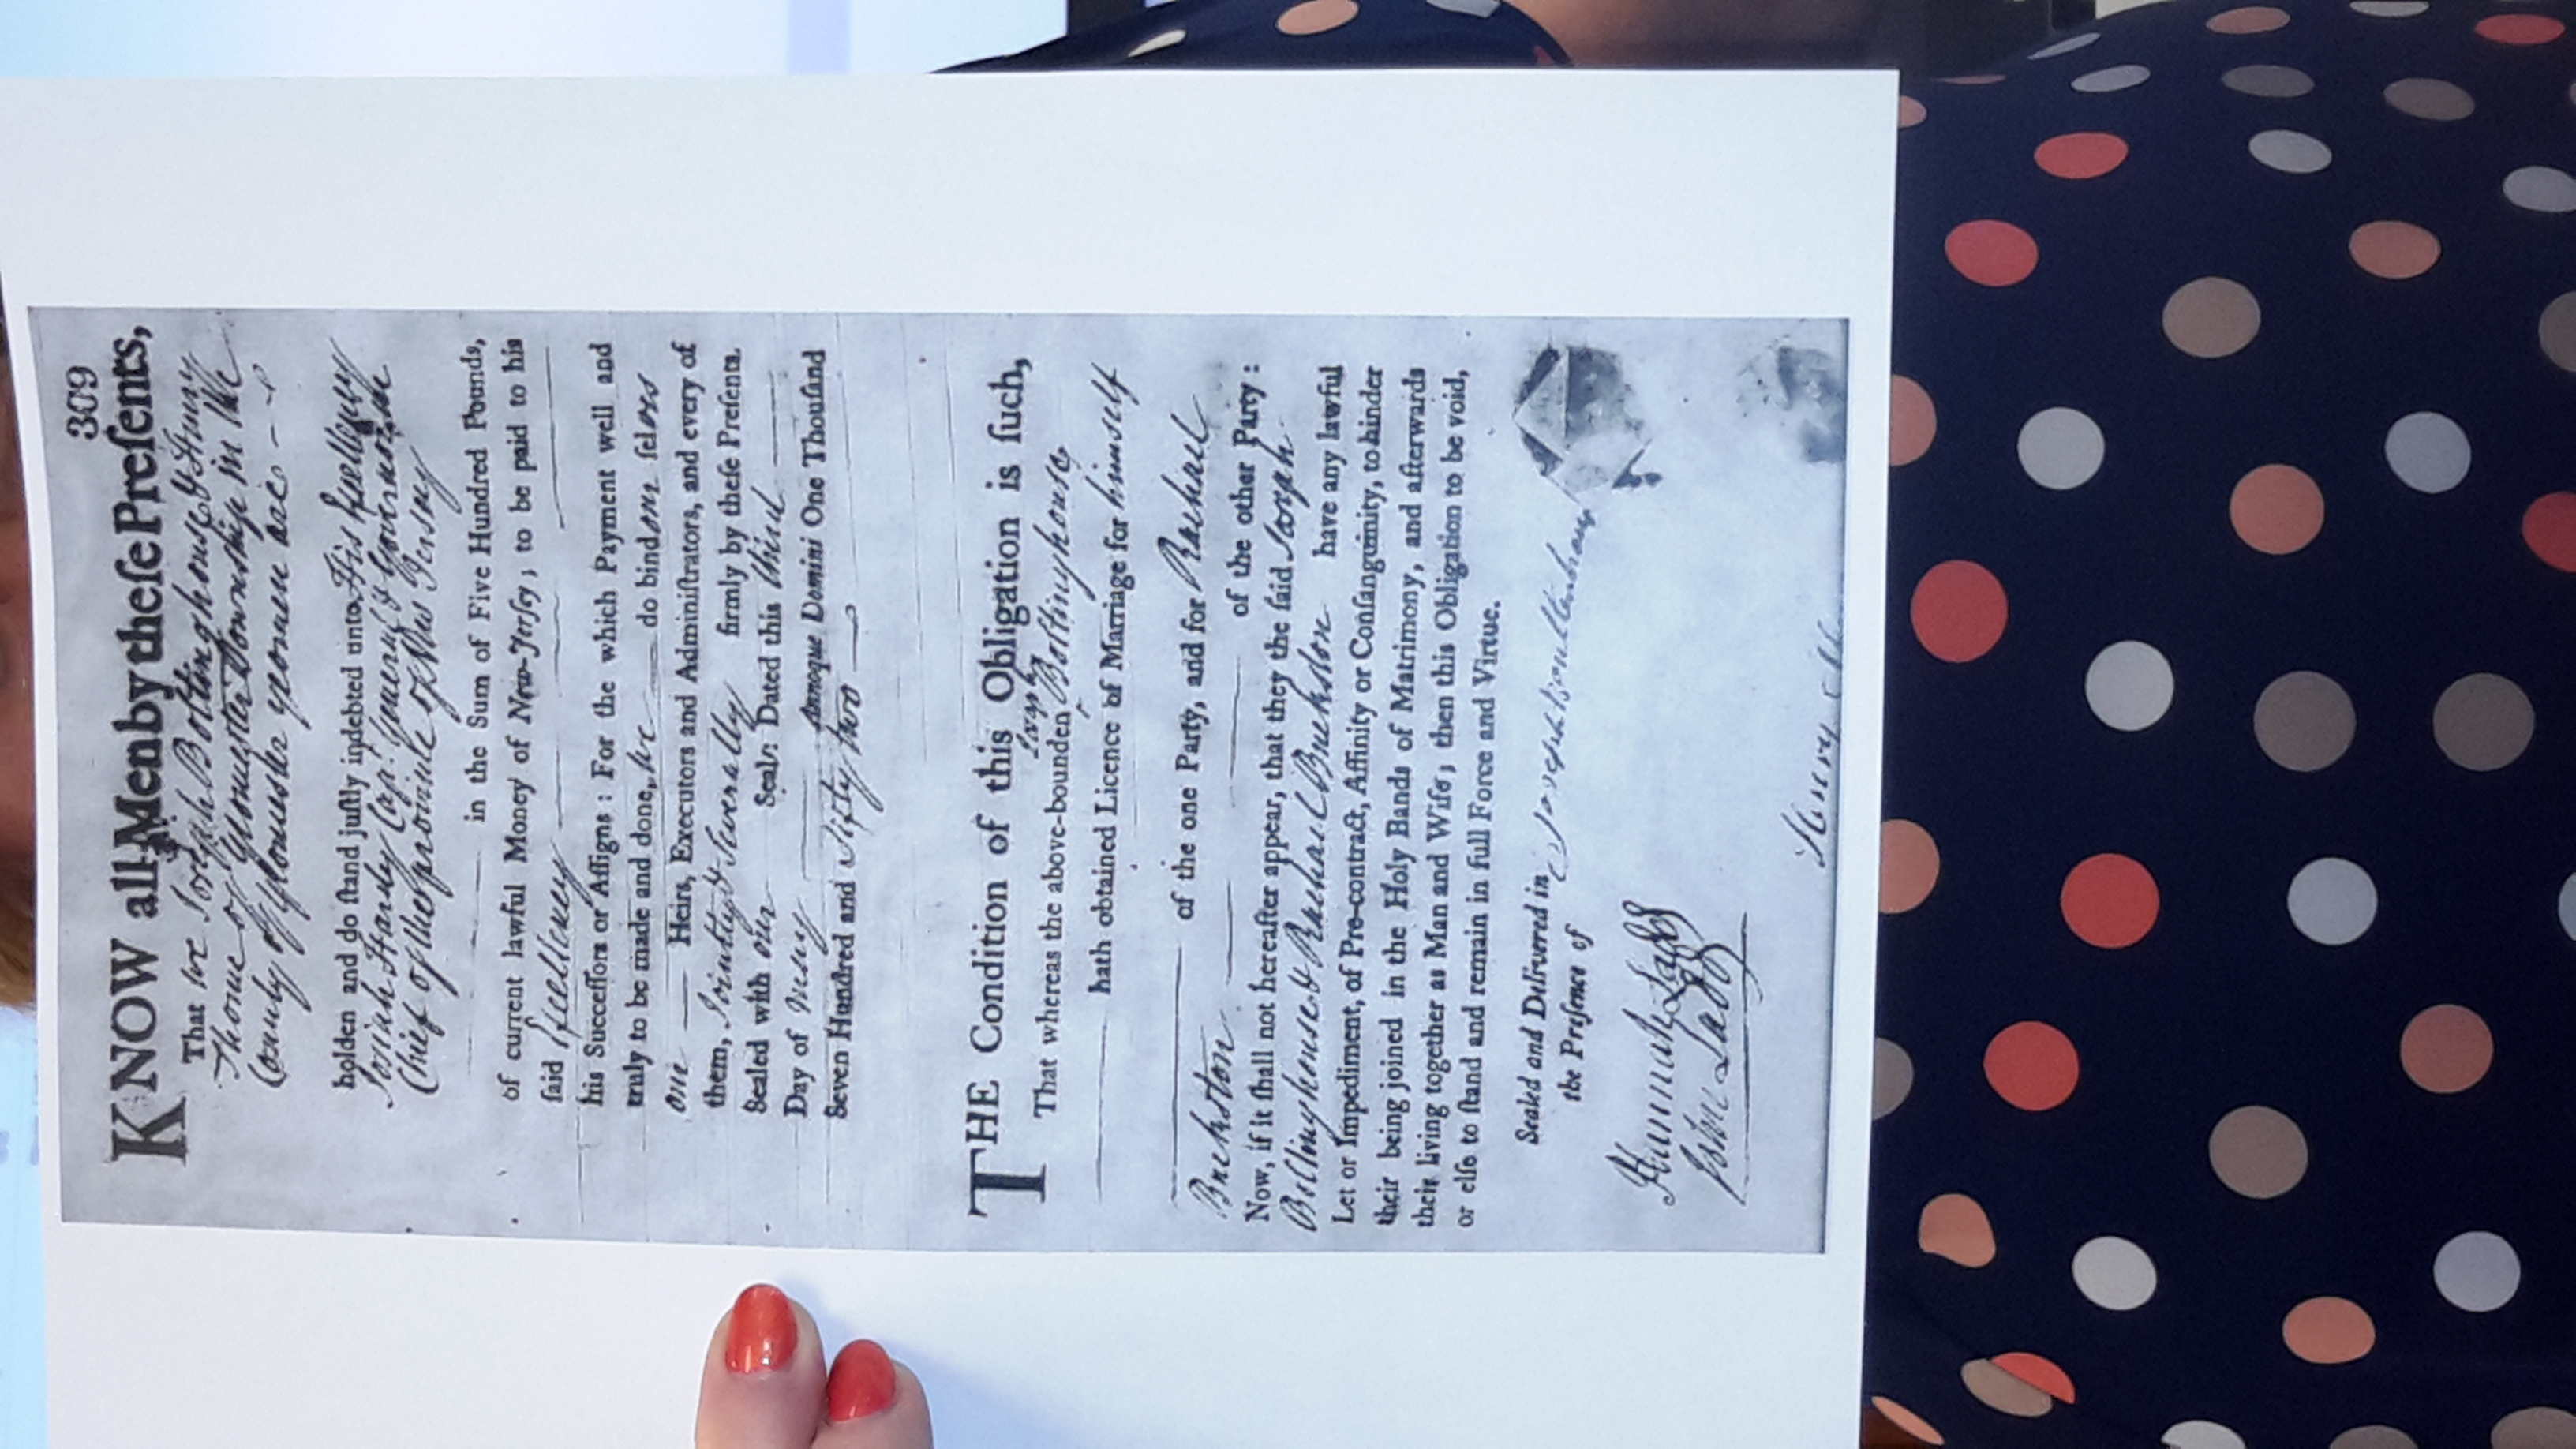 309
KNOW all Men by theſe Preſents,
That we Joseph Bollinghouse & Henry
Thorne of Gloucester Township in the
County of Gloucester yeomen are
holden and do ſtand juſtly indebted unto His Excellency
Josiah Hardy Capt. General & Governor in
Chief of the province of New Jersey
in the Sum of Five Hundred Pounds,
of current lawful Money of New-Jerſey; to be paid to his
ſaid Excellency
his Succeſſors or Aſſigns: For the which Payment well and
truly to be made and done, we do bind our selves
our Heirs, Executors and Adminiſtrators, and every of
them, Jointly & Severally firmly by theſe Preſents.
Sealed with our Seals Dated this third
Day of Annoque Domini One Thouſand
Seven Hundred and Sixty two
THE Condition of this Obligation is ſuch,
Joseph
That whereas the above-bounden Bollinghouse
hath obtained Licence of Marriage for himself
of the one Party, and for Rachael
Brekston of the other Party:
Now, if it ſhall not hereafter appear, that they the ſaid Joseph
Bollinghouse & Rachael Brekston have any lawful
Let or Impediment, of Pre-contract, Affinity or Conſanguinity, to hinder
their being joined in the Holy Bands of Matrimony, and afterwards
their living together as Man and Wife; then this Obligation to be void,
or elſe to ſtand and remain in full Force and Virtue.
Sealed and Delivered in Joseph
the Preſence of
Hannah Ladd
John Ladd
Henry